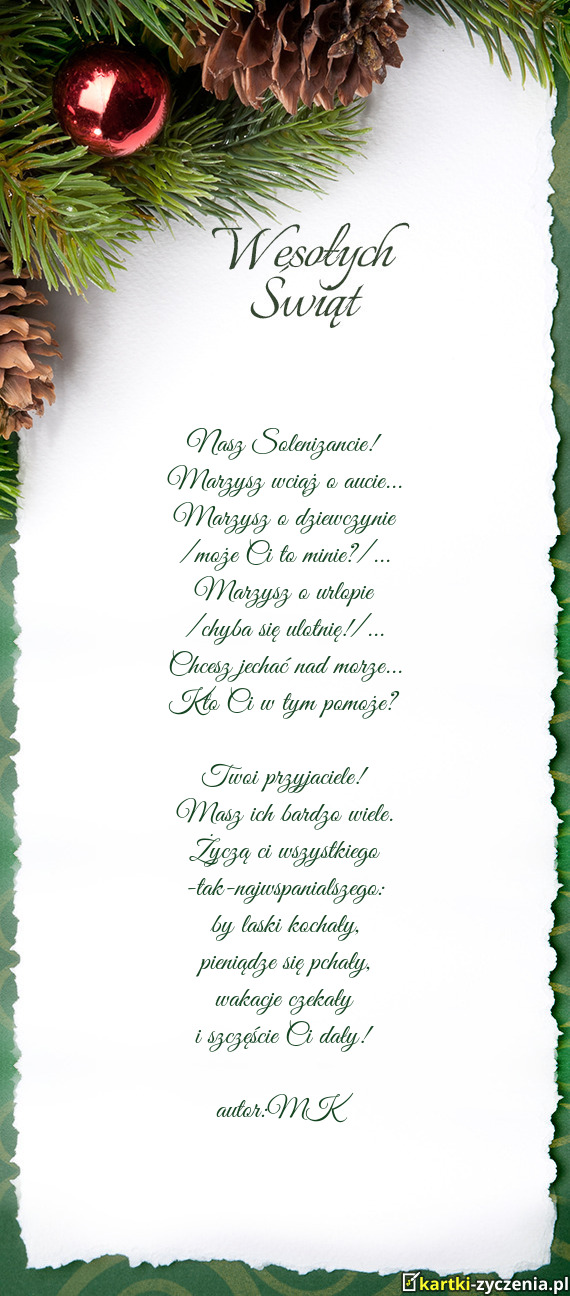 Wesołych
Świąt
Nasz Solenizancie!
Marzysz wciąż o aucie...
Marzysz o dziewczynie
/może Ci to minie?/...
Marzysz o urlopie
/chyba się ulotnię!/...
Chcesz jechać nad morze...
Kto Ci w tym pomoże?
Twoi przyjaciele!
Masz ich bardzo wiele.
Życzą ci wszystkiego
-tak-najwspanialszego:
by laski kochały,
pieniądze się pchały,
wakacje czekały
i szczęście Ci dały!
autor:MK
kartki-zyczenia.pl